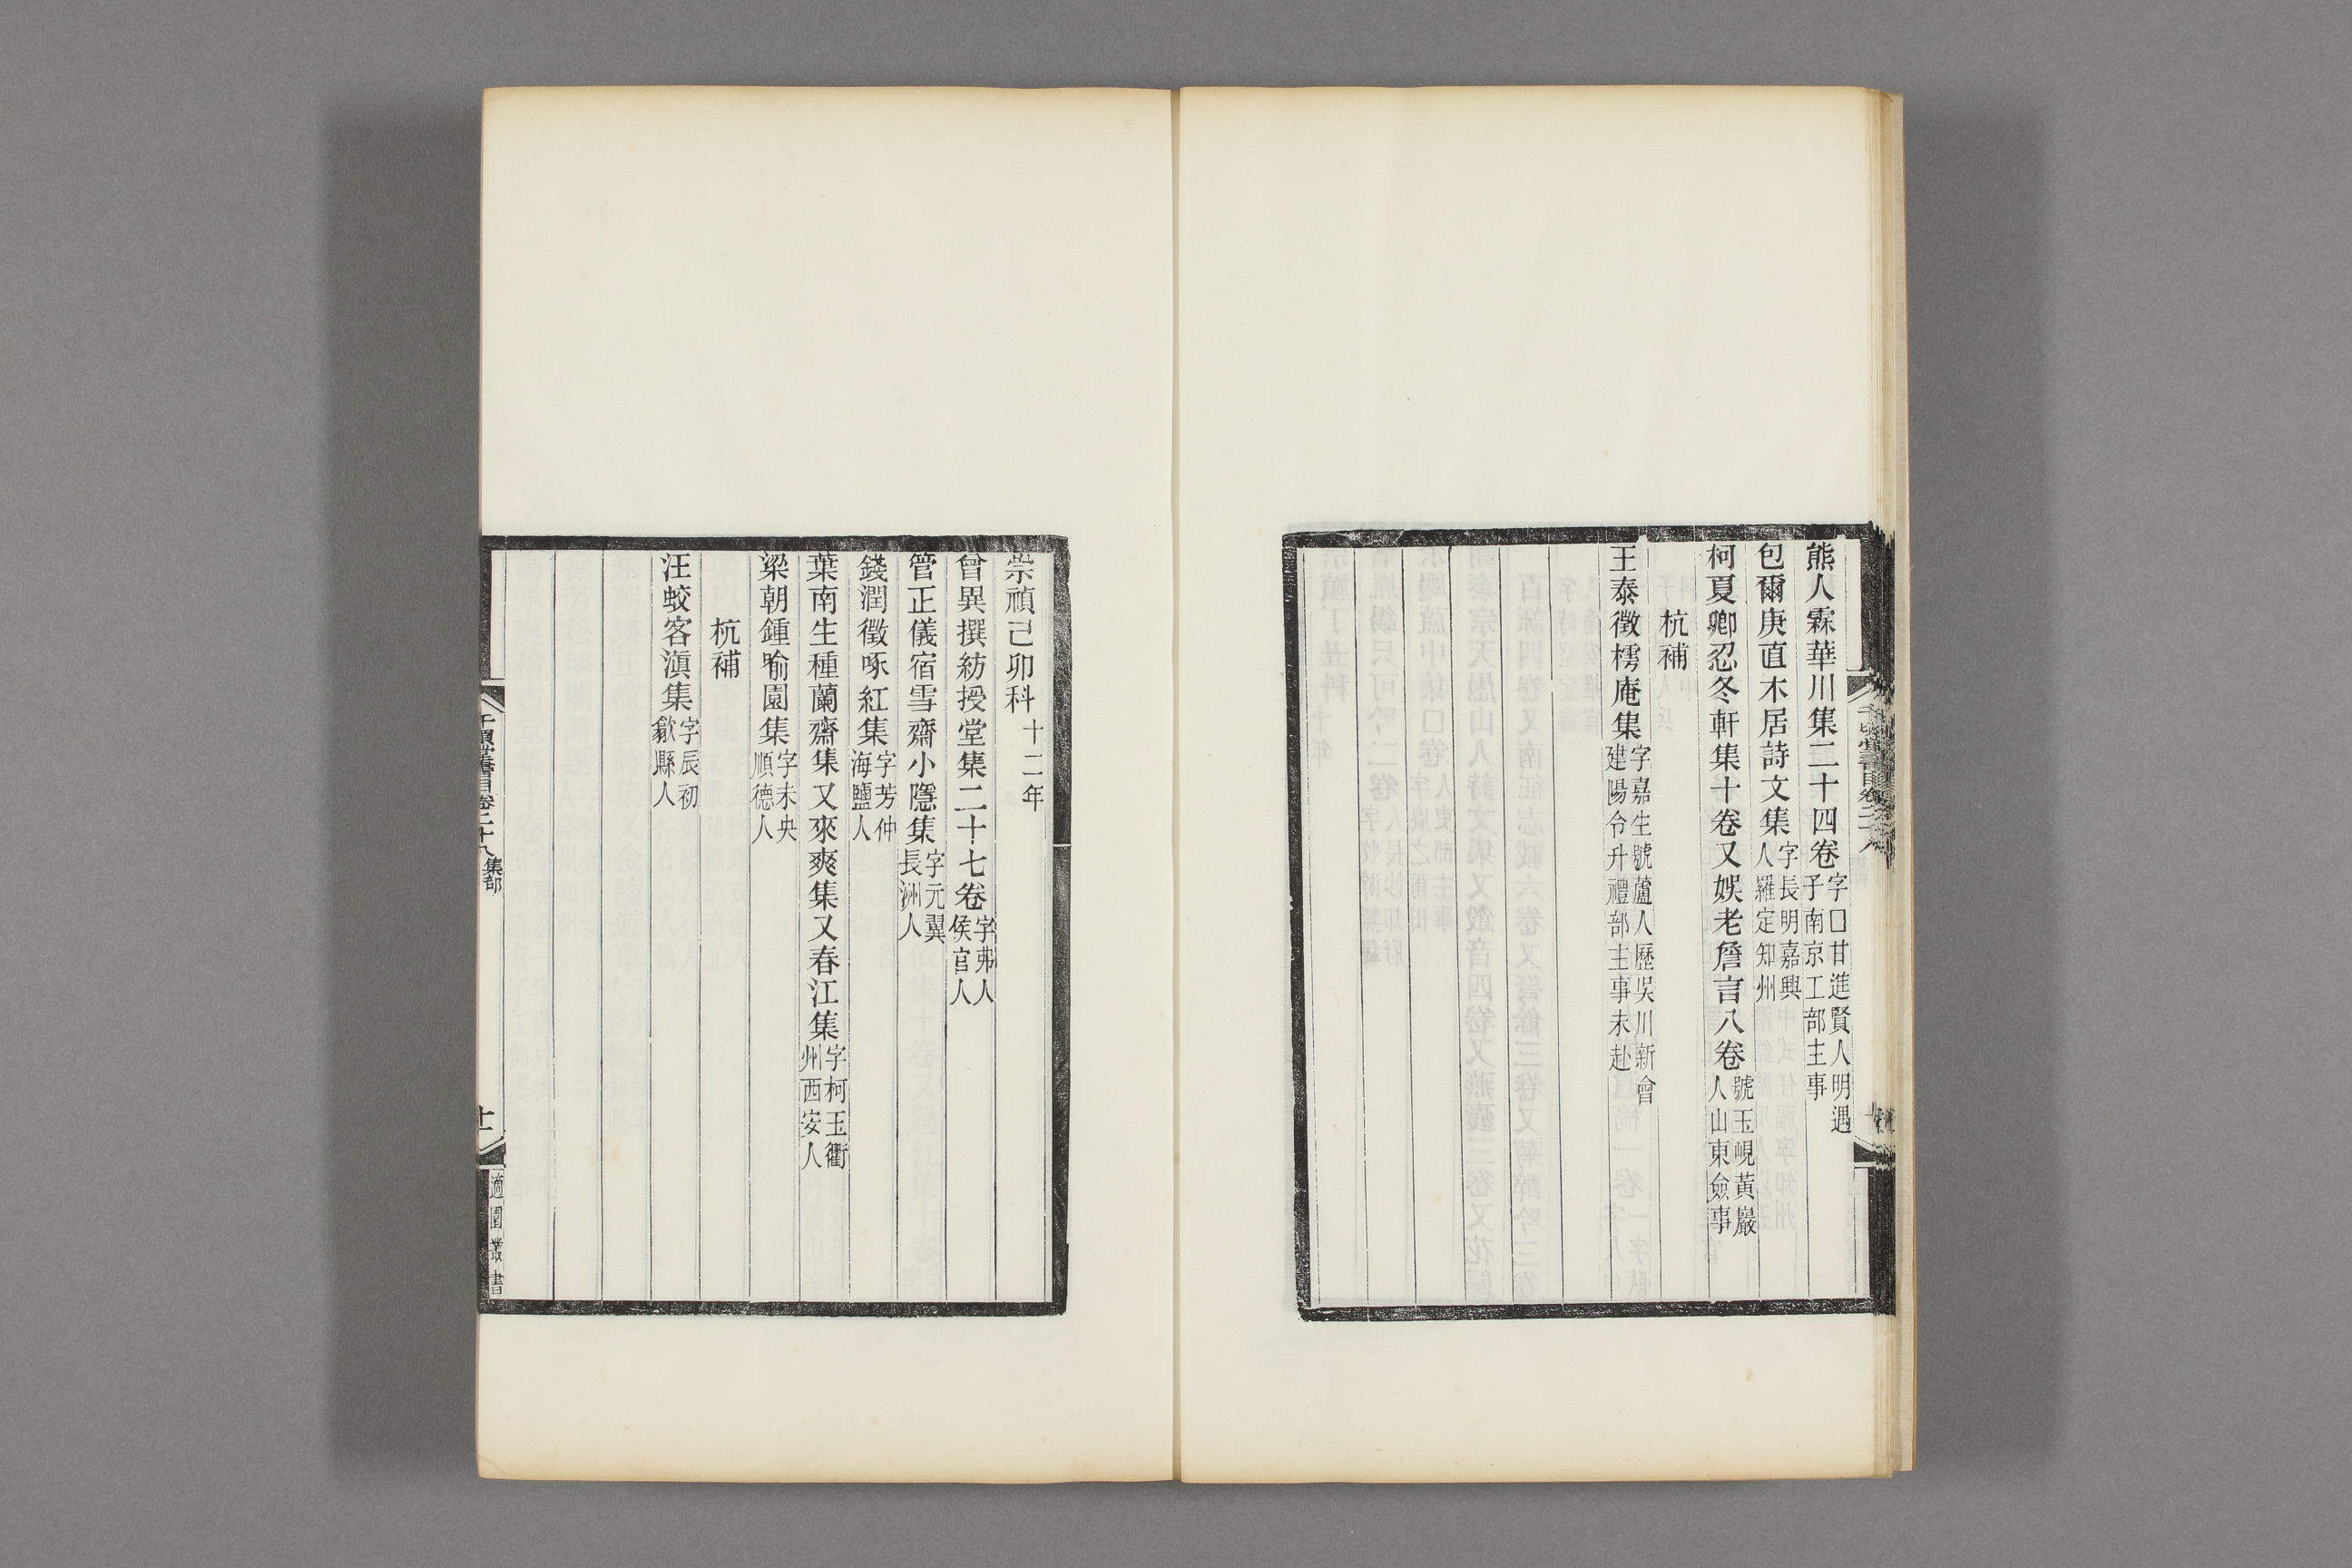 熊人霖華川集二十四卷字□甘進賢人明遇子南京工部主事
包爾庚直木居詩文集字長明嘉興人羅定知州
柯夏卿忍冬軒集十卷又娛老詹言八卷號玉峴黃巖人山東僉事
杭補
王泰徵樗庵集字嘉生號蘆人歷吳川新會建陽令升禮部主事未赴
崇禎己卯科十二年
曾異撰紡授堂集二十七卷字弗人侯官人
管正儀宿雪齋小隱集字元翼長洲人
錢潤徵啄紅集字芳仲海鹽人
葉南生種蘭齋集又來爽集又春江集字柯玉衢州西安人
梁朝鍾喻園集字未央順德人
杭補
汪蛟客滇集字辰初歙縣人
千頃堂書目卷二十八集部
十一
適園叢書